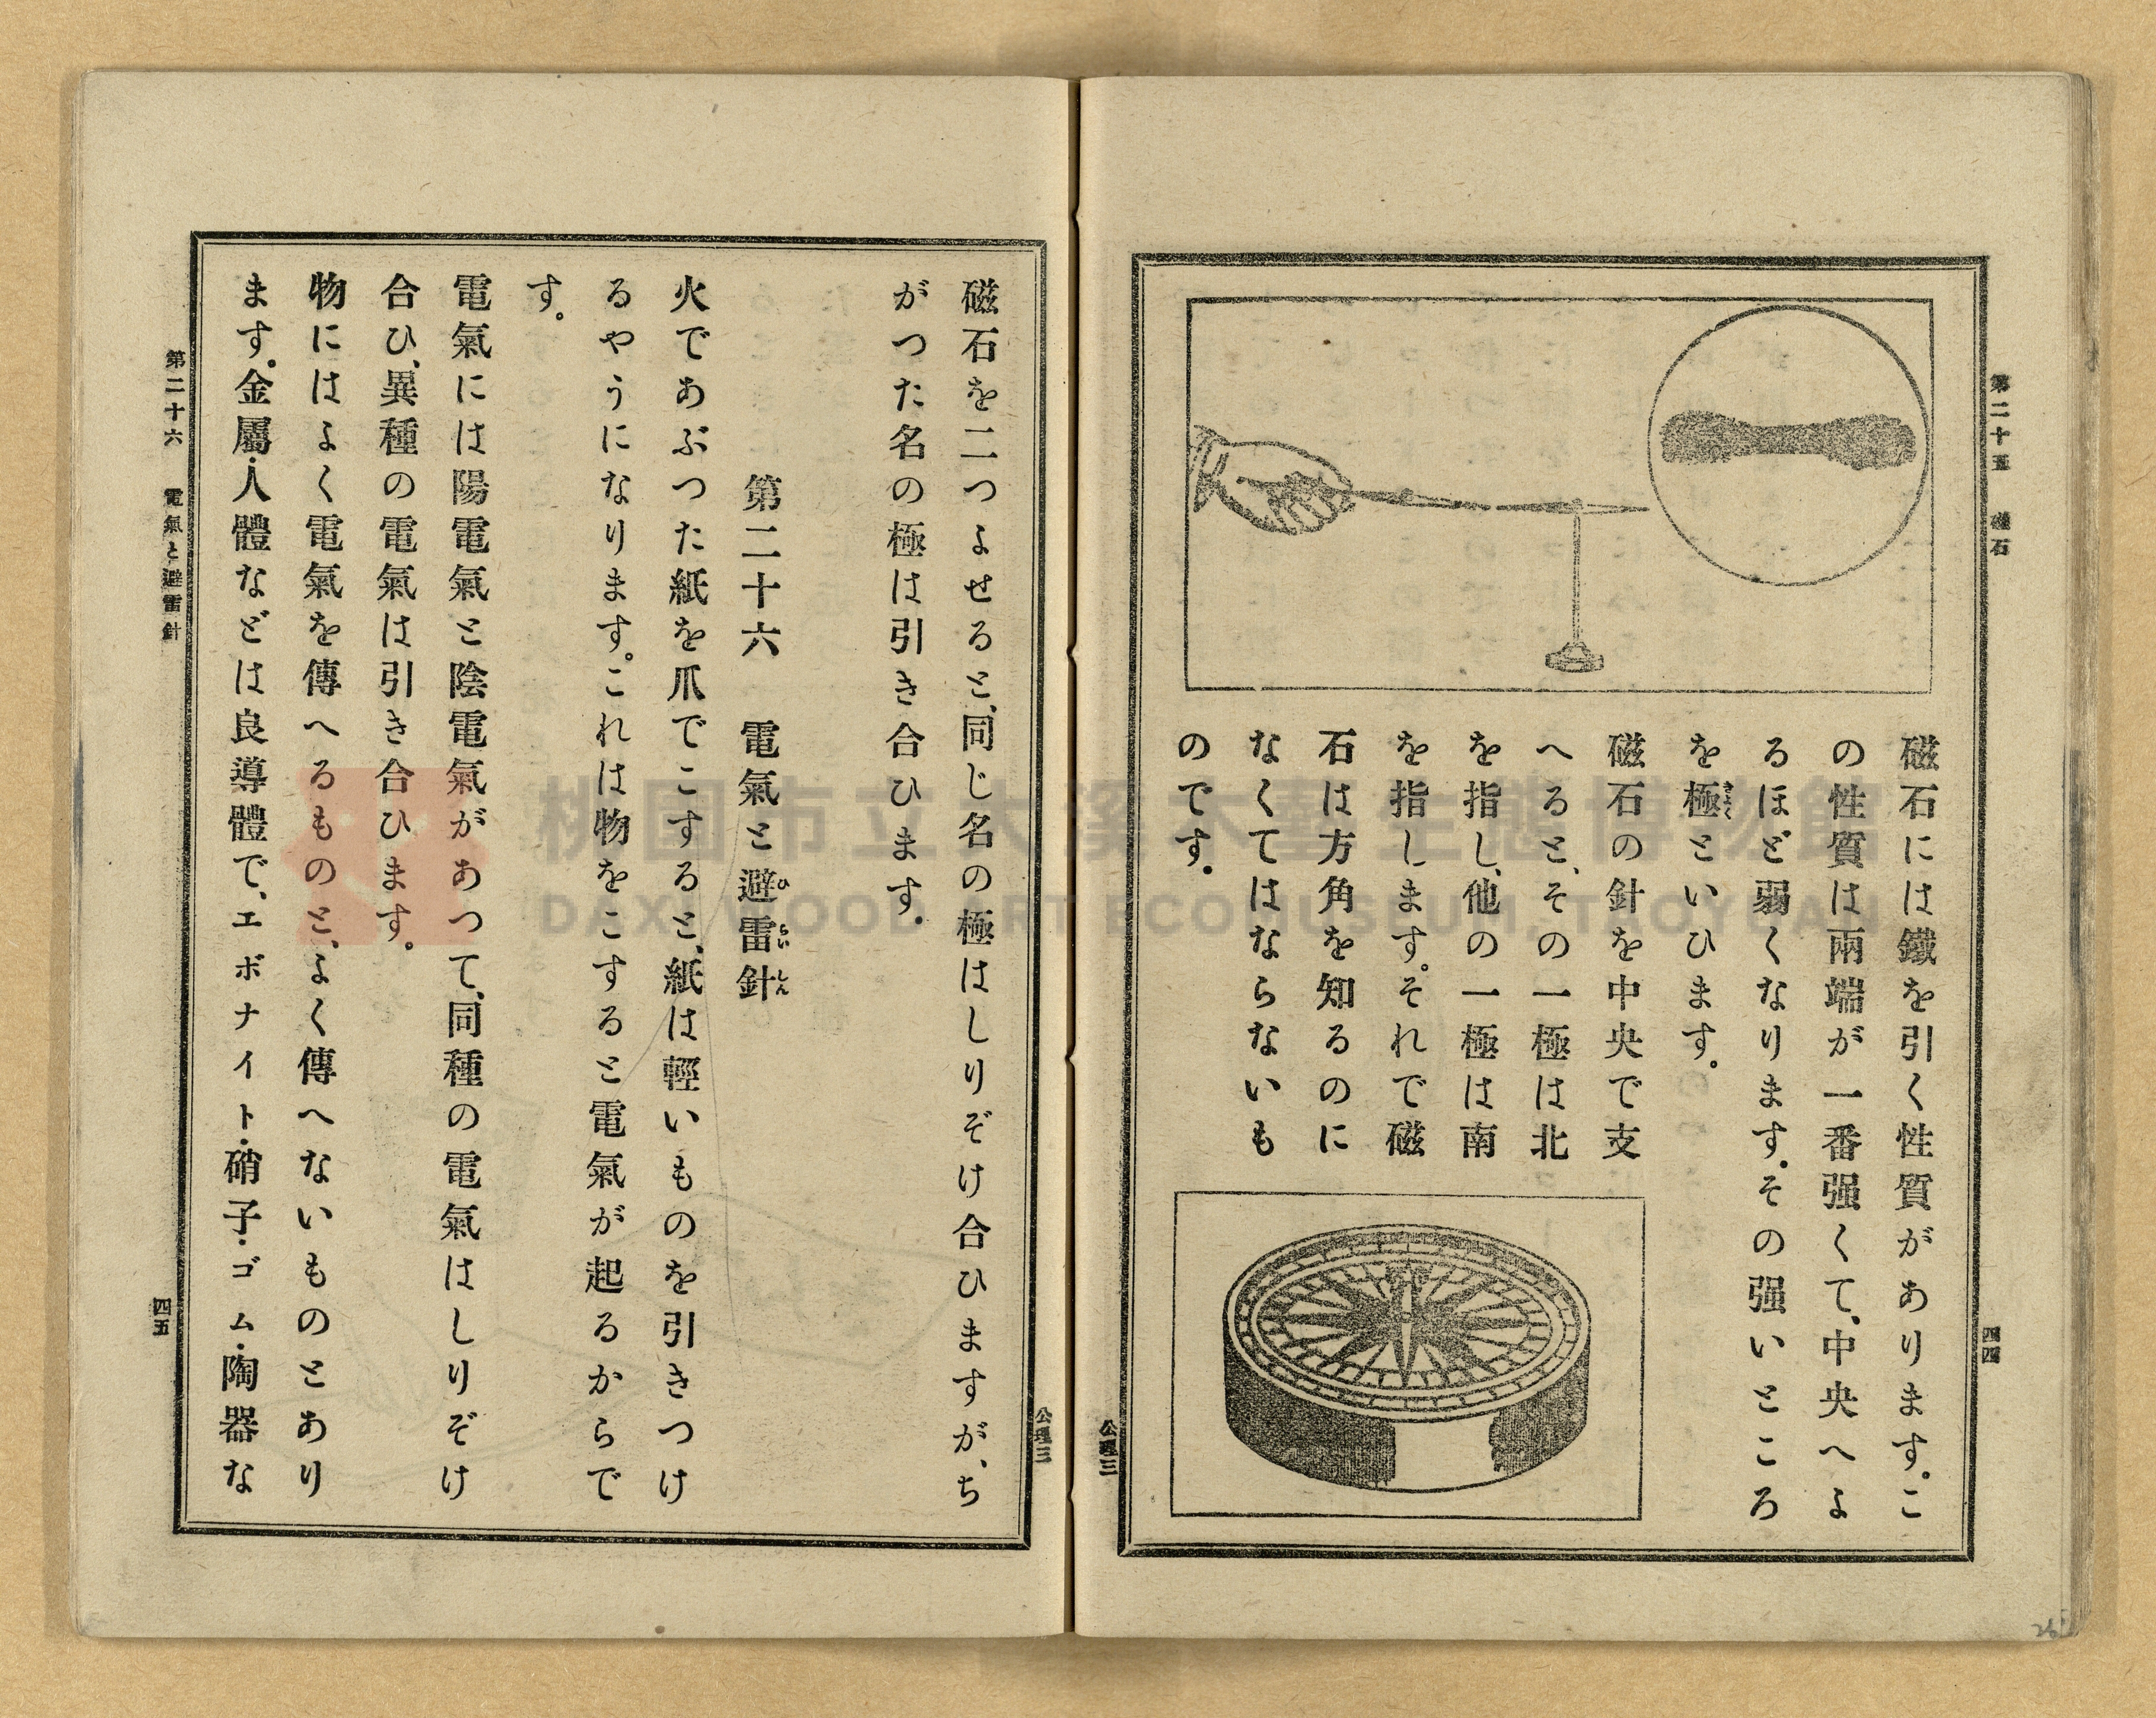 第二十五 磁石
四四
磁石には鐵を引く性質があります。こ
の性質は兩端が一番强くて、中央へよ
るほど弱くなります。その强いところ
を極といひます。
きよく
磁石の針を中央で支
へると、その一極は北
を指し、他の一極は南
を指します。それで磁
石は方角を知るのに
なくてはならないも
のです。
公理三
公理三
磁石を二つよせると、同じ名の極はしりぞけ合ひますが、ち
がつた名の極は引き合ひます。
第二十六 電氣と避雷針
ひらいしん
火であぶつた紙を爪でこすると、紙は輕いものを引きつけ
るやうになります。これは物をこすると電氣が起るからで
す。
電氣には陽電氣と陰電氣があつて、同種の電氣はしりぞけ
合ひ、異種の電氣は引き合ひます。
物にはよく電氣を傳へるものと、よく傳へないものとあり
ます。金屬・人體などは良導體で、エボナイト・硝子・ゴム・陶器な
第二十六 電氣と避雷針
四五
桃園市立大溪木藝生態博物館
DAXI WOOD ART ECOMUSEUM, TAOYUAN